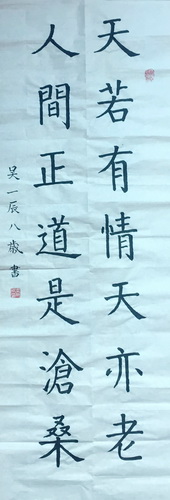 天若有情天亦老
人間正道是滄桑
吴一辰八歲書